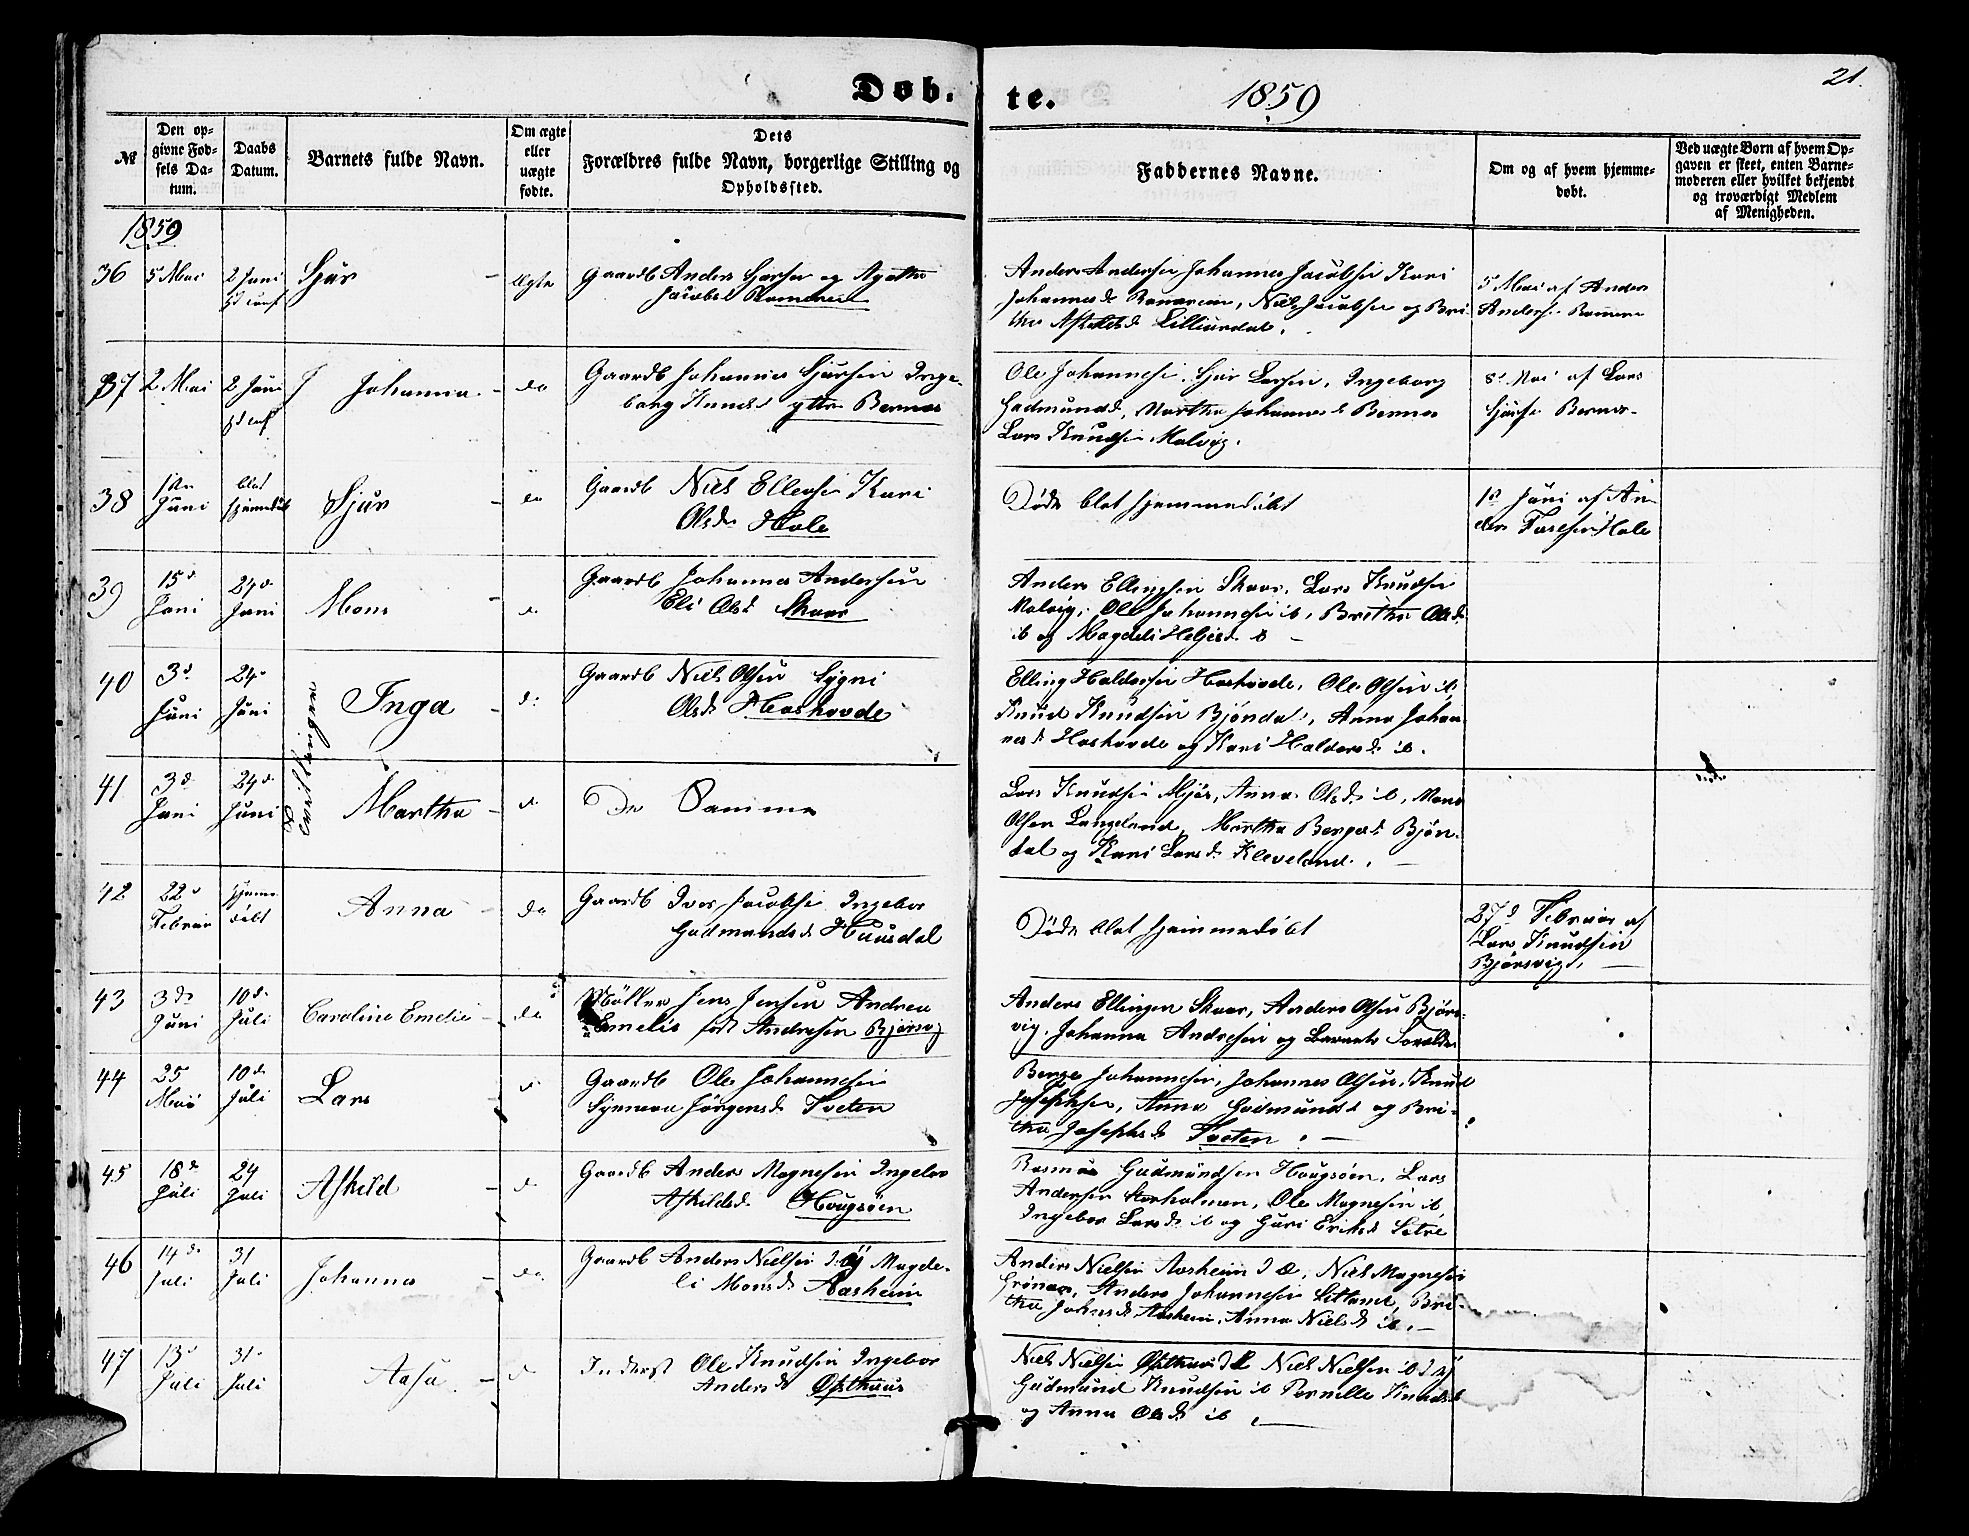 Døb-te. 1859 21.
№
Den op-
givne Fød-
sels Da-
tum.
Daabs
Datum.
Barnets fulde Navn.
Om ægte
eller
uægte
fødte.
Dets
Forældres fulde Navn, borgerlige Stilling og
Opholdssted.
Faddernes Navne.
Om og af hvem hjemme-
døbt.
Ved uægte Børn af hvem Op-
gaven er skeet, enten Barne-
moderen eller hvilket bekjendt
og troværdigt Medlem
af Menigheden.
1859
36 5 Mai 2 Juni Sjur - Ægte Gaardb Anders og Agatha
Jacobsd
Anders Andersen Johannes Jacobsen Kari
Johannesd Niels Jacobsen og Bri-
tha
5 Mai af Anders
Andersen
37 2 Mai 2 Juni Johanna - do Gaardb Johannes Sjursen Inge-
borg Knudsd ytre Bernes
Ole Johannesen, Sjur Larsen, Ingeborg
Gudmundsd, Martha Johannesd Bernes
Lars Knudsen Malvig.
8d Mai af Lars
Bernes
38 1ste Juni blot hjemmedøbt Sjur - do Gaardb Niels Ellensen Kari
Olsdr Hole
Døde blot hjemmedøbt
1d Juni af An-
ders Hole
39 15d Juni 24d Juni Mons - do Gaardb Johannes Andersen
Eli Olsd Skaar
Anders Ellingsen Skaar, Lars Knudsen
Malvig, Ole Johannesen ib, Britha Olsd
ib og Magdeli ib -
40 3d Juni 24d Juni Tvillinger Inga - do Gaardb Niels Olsen Sygni
Olsdr Hoshovde
Elling Haldorsen Hoshovde, Ole Olsen ib,
Knud Knudsen Bjøndal, Anna Johan-
nesd Hoshovde og Kari Haldorsdr ib.
41 3d Juni 24d Juni Martha - do De Samme
Lars Knudsen Mjøs, Anna Olsdr ib, Mons
Olsen Langeland, Martha Bergesd Bjøn-
dal og Kari Larsdr Kleveland. -
42 22d Februar hjemme-
døbt Anna - do Gaardb Iver Jacobsen Ingebor
Gudmundsd Huusdal
Døde blot hjemmedøbt
27d Februar af
Lars Knudsen
Bjørsvig. -
43 3de Juni 10de Juli Caroline Emelie - do Møller Jens Jensen Andrea
Emelie født Andresen Bjørsvig
Anders Ellingen Skaar, Anders Olsen Bjørs-
vig, Johanna Andresen og Barnets Forældre
44 25 Mai 10de Juli Lars - do Gaardb Ole Johannesen
Synneva Jørgensdr Tveten
Berge Johannesen, Johannes Olsen, Knud
Josephsen, Anna Gudmundsd og Bri-
tha Josephsdr Tveten. -
45 18de Juli 24 Juli Askild - do Gaardb Anders Magnesen Ingebor
Askildsdr Hougsøen
Rasmus Gudmundsen Hougsøen, Lars
Andersen Storholmen, Ole Magnesen ib,
Ingebor Larsdr ib og Guri Eriksd Sætre
46 14de Juli 31 Juli Johanna - do Gaardb Anders Nielsen d. y Magde-
li Monsdr Aasheim
Anders Nielsen Aasheim d Æ, Niels Magnesen
Grønaas, Anders Johannesen Litland, Bri-
tha Johnsdr Aasheim, Anna Nielsdr ib. -
47 13d Juli 31 Juli Aasa - do Inderst Ole Knudsen Ingebor
Andersdr Østhuus
Niels Nielsen Østhuus d Æ Niels Nielsen ib d y
Gudmund Knudsen ib Pernille Knudsd
og Anna Olsdr ib. -